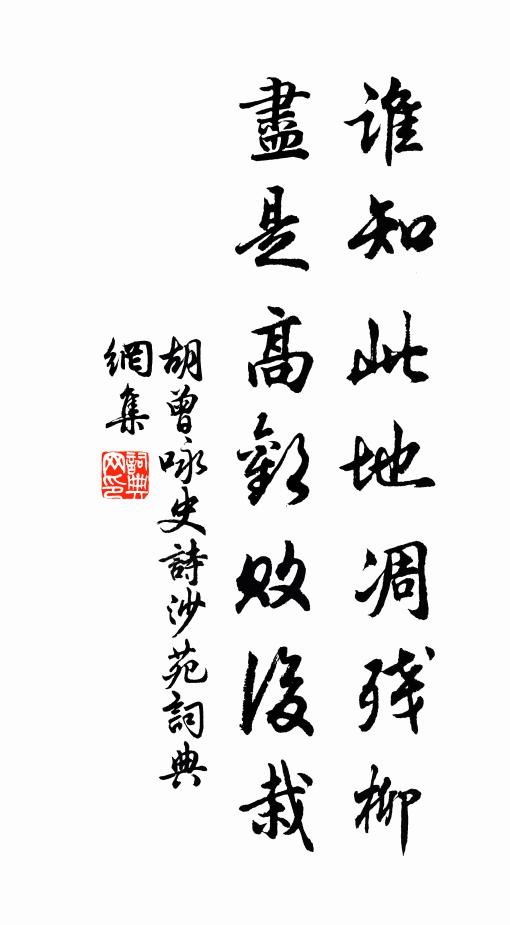 誰知此地凋残柳
盡是高歡敗後栽
胡曾咏史詩沙苑詞典
網集
詞典網印